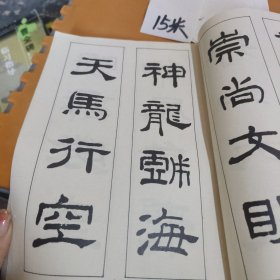 15米
崇尚文
神龍戲海
天馬行空